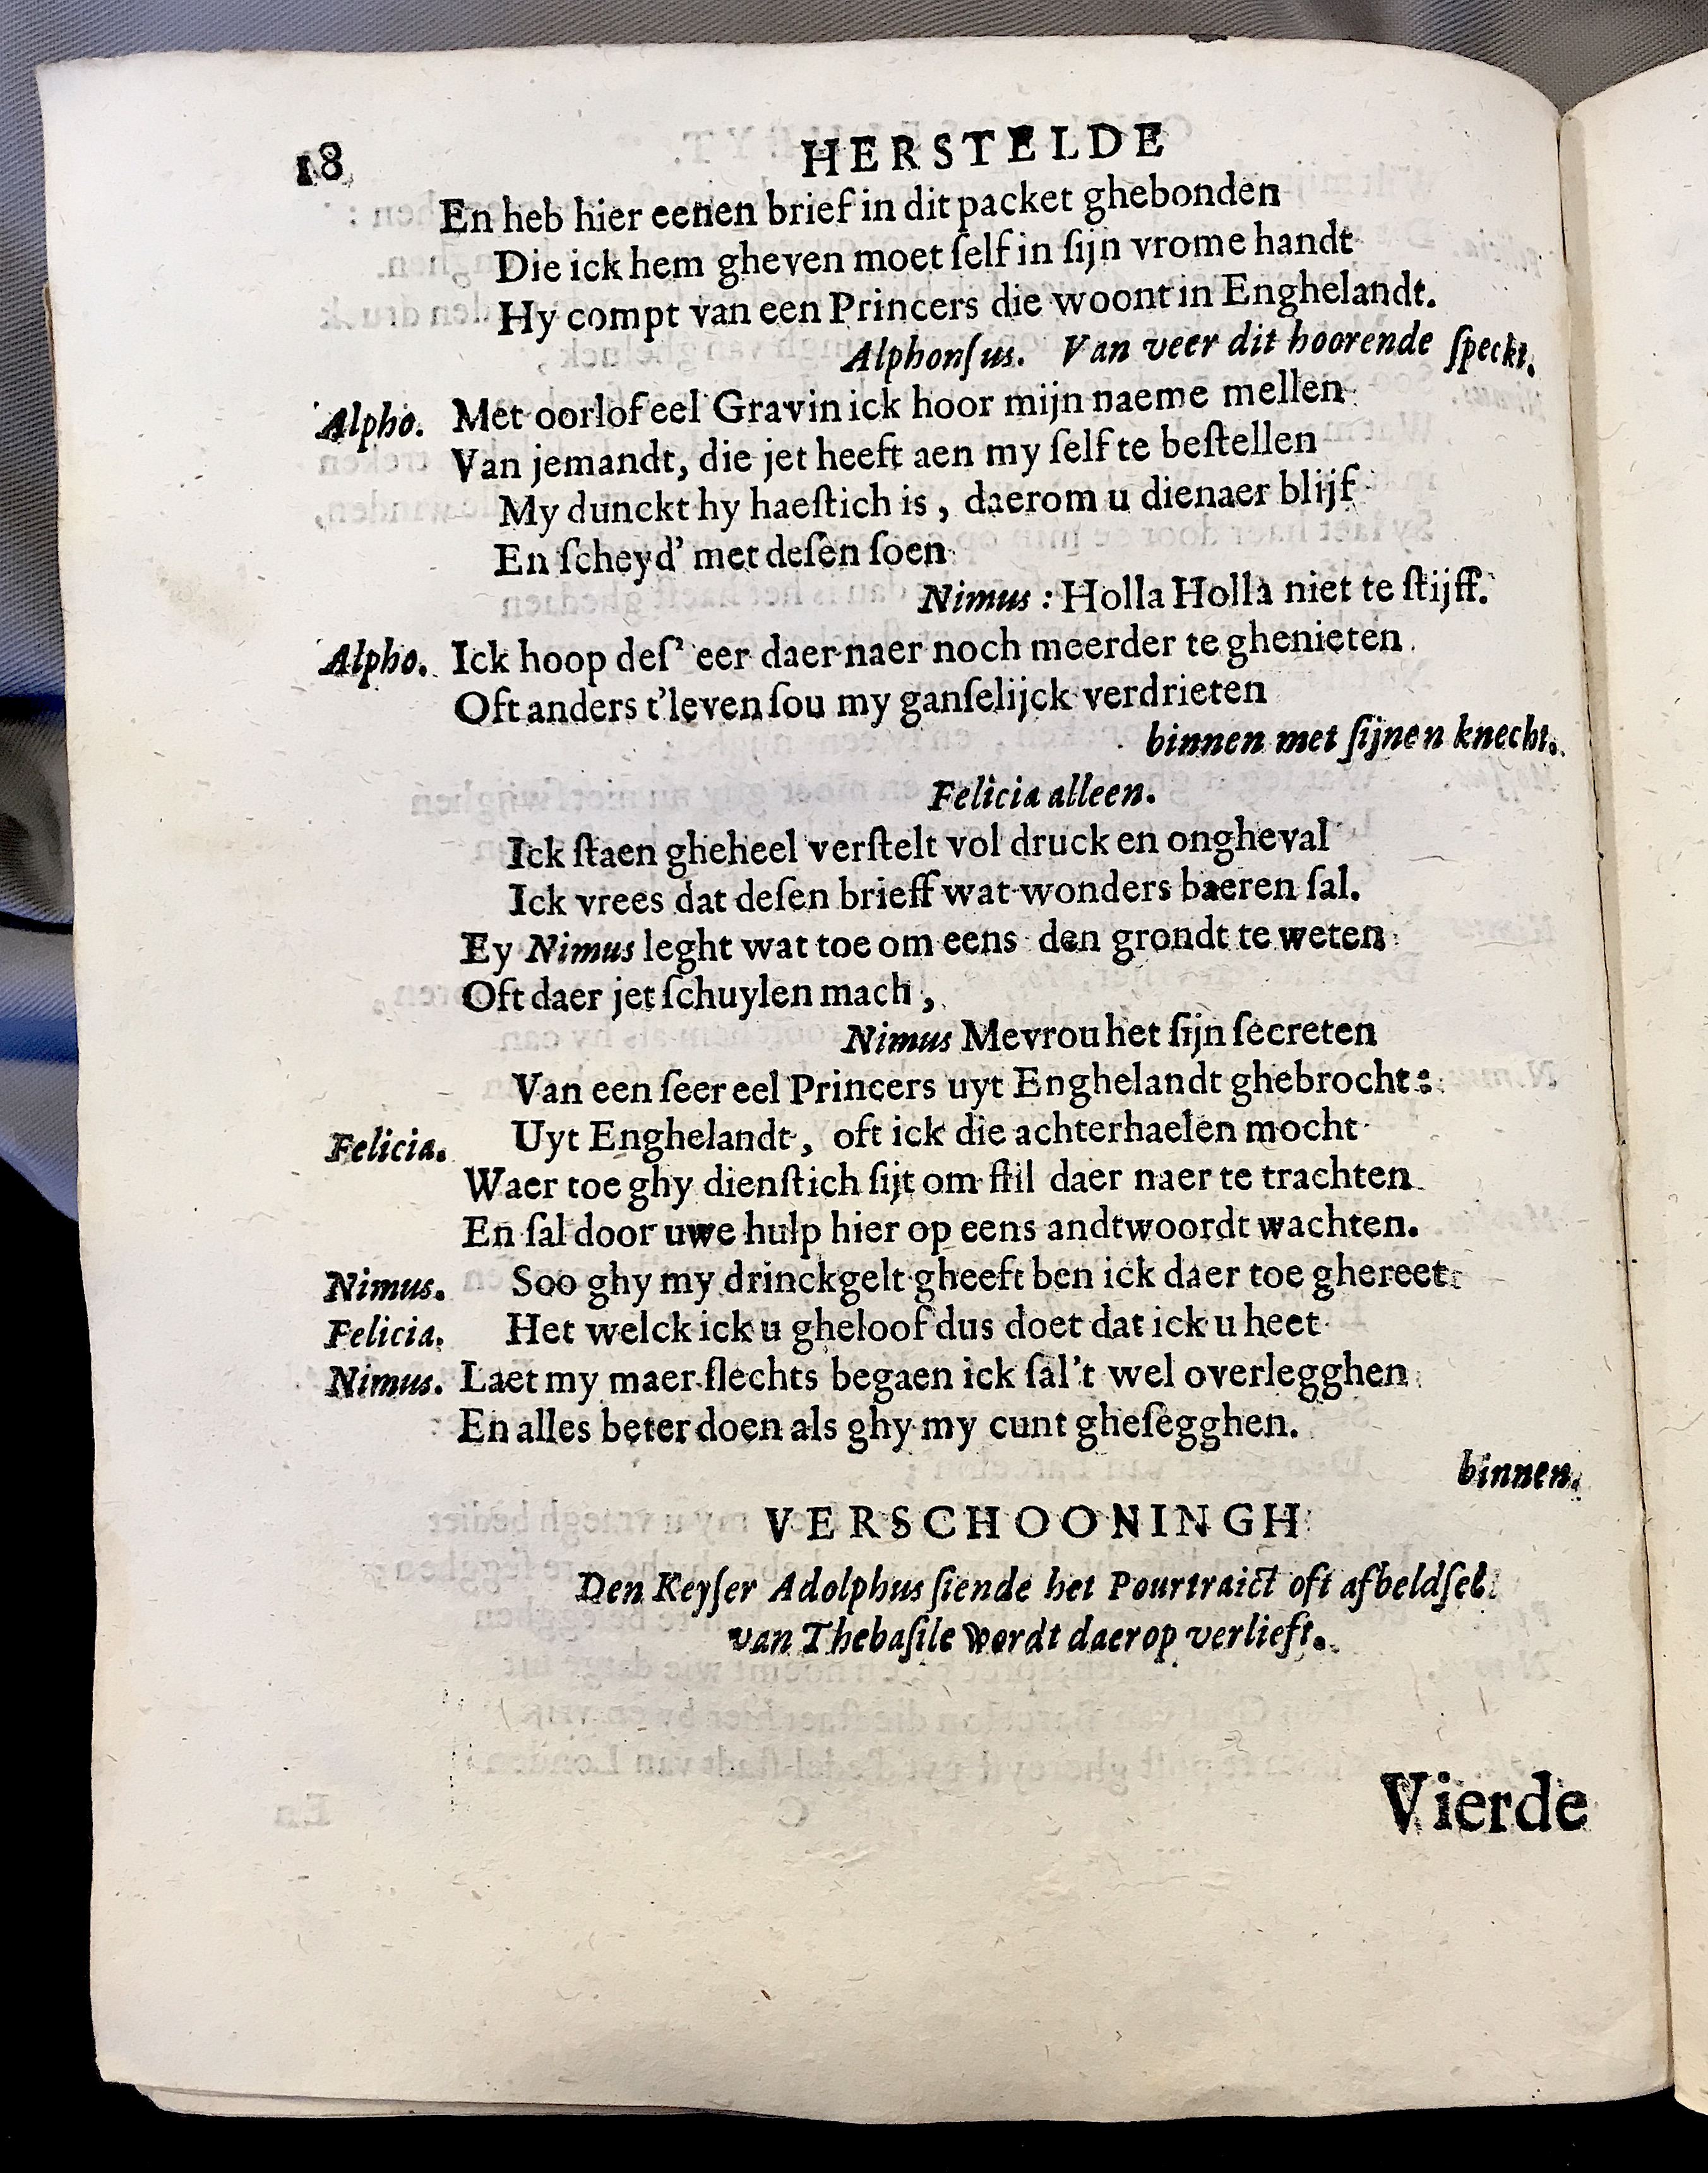 18 HERSTELDE
En heb hier eenen brief in dit packet ghebonden
Die ick hem gheven moet ſelf in ſijn vrome handt
Hy compt van een Princers die woont in Enghelandt.
Alphonſus. Van veer dit hoorende ſpeckt.
Alpho. Met oorlof eel Gravin ick hoor mijn naeme mellen
Van jemandt, die jet heeft aen my ſelf te beſtellen
My dunckt hy haeſtich is, daerom u dienaer blijf
En ſcheyd' met deſen ſoen
Nimus: Holla Holla niet te ſtijff.
Alpho. Ick hoop deſ' eer daer naer noch meerder te ghenieten
Oft anders t'leven ſou my ganſelijck verdrieten
binnen met ſijnen knecht.
Felicia alleen.
Ick ſtaen gheheel verſtelt vol druck en ongheval
Ick vrees dat deſen brieff wat wonders baeren ſal.
Ey Nimus leght wat toe om eens den grondt te weten
Oft daer jet ſchuylen mach,
Nimus Mevrou het ſijn ſecreten
Van een ſeer eel Princers uyt Enghelandt ghebrocht:
Felicia. Uyt Enghelandt, oft ick die achterhaelen mocht
Waer toe ghy dienſtich ſijt om ſtil daer naer te trachten
En ſal door uwe hulp hier op eens andtwoordt wachten.
Nimus. Soo ghy my drinckgelt gheeft ben ick daer toe ghereet
Felicia. Het welck ick u gheloof dus doet dat ick u heet
Nimus. Laet my maer ſlechts begaen ick ſal't wel overlegghen
En alles beter doen als ghy my cunt gheſegghen.
binnen.
VERSCHOONINGH
Den Keyſer Adolphus ſiende het Pourtraict oft afbeldſel
van Thebaſile wordt daerop verlieft.
Vierde